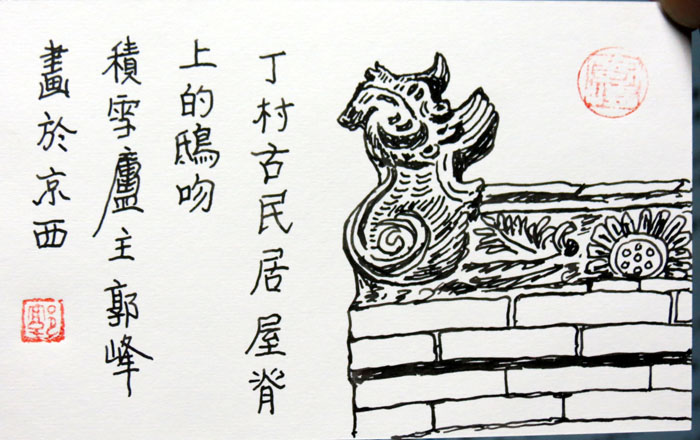 丁村古民居屋脊
上的鴟吻
積雪廬主郭峰
畫於京西